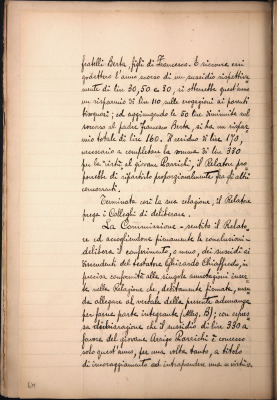 fratelli Berta, figli di Francesco. E siccome essi
godettero l'anno scorso di un sussidio rispettiva=
mente di lire 30, 50 e 30, si otterrebbe quest'anno
un risparmio di lire 110 sulle erogazioni ai parenti
bisognosi; ed aggiungendo le 50 lire diminuite sul
soccorso al padre Francesco Berta, si ha un rispar=
mio totale di lire 160. Il residuo di lire 170,
necessario a completare la somma di lire 330
per la virtù, al giovane Parrichi, il Relatore pro=
porrebbe di ripartirlo proporzionalmente fra gli altri
concorrenti.
Terminata così la sua relazione, il Relatore
prega i Colleghi di deliberare.
La Commissione, sentito il Relato=
re ed accogliendone pienamente le conclusioni,
delibera il conferimento, o meno, dei sussidi ai
discendenti del testatore Ghirardo Chiaffredo, in
precisa conformità alle singole annotazioni inser=
te nella Relazione che, debitamente firmata, man=
da allegare al verbale della presente adunanza
per farne parte integrante (Alleg. B); con espres=
sa dichiarazione che il sussidio di lire 330 a
favore del giovane Arrigo Parrichi è concesso
solo quest'anno, per una volta tanto, a titolo
di incoraggiamento ad intraprendere una